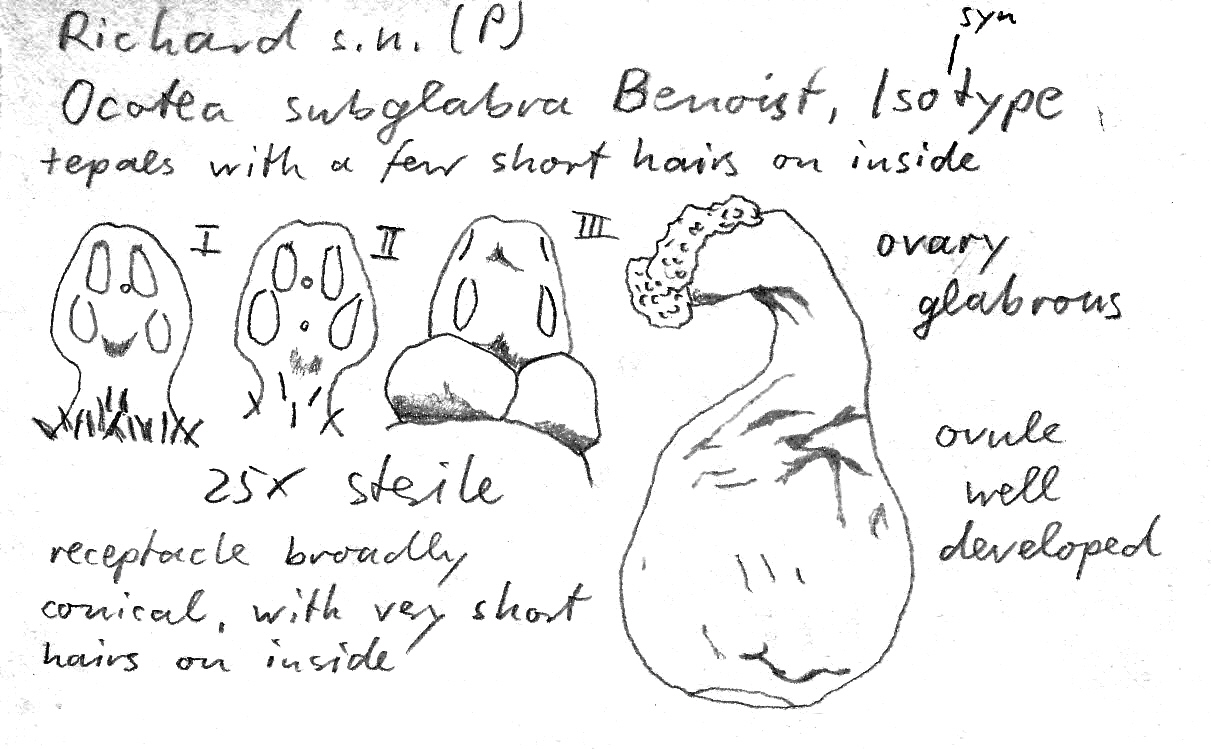 Richard s.n. (P)
syn
Ocotea subglabra Benoist, Isotype
tepals with a few short hairs on inside
I
II
III
ovary
glabrous
25X sterile
ovule
well
developed
receptacle broadly
conical, with very short
hairs on inside